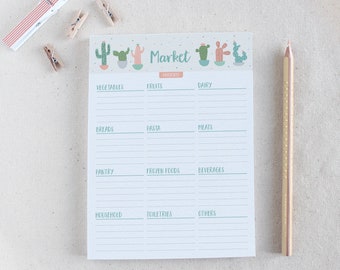 Market
VEGETABLES FRUITS DAIRY
BREADS PASTA MEATS
PANTRY FROZEN FOODS BEVERAGES
HOUSEHOLD TOILETRIES OTHERS